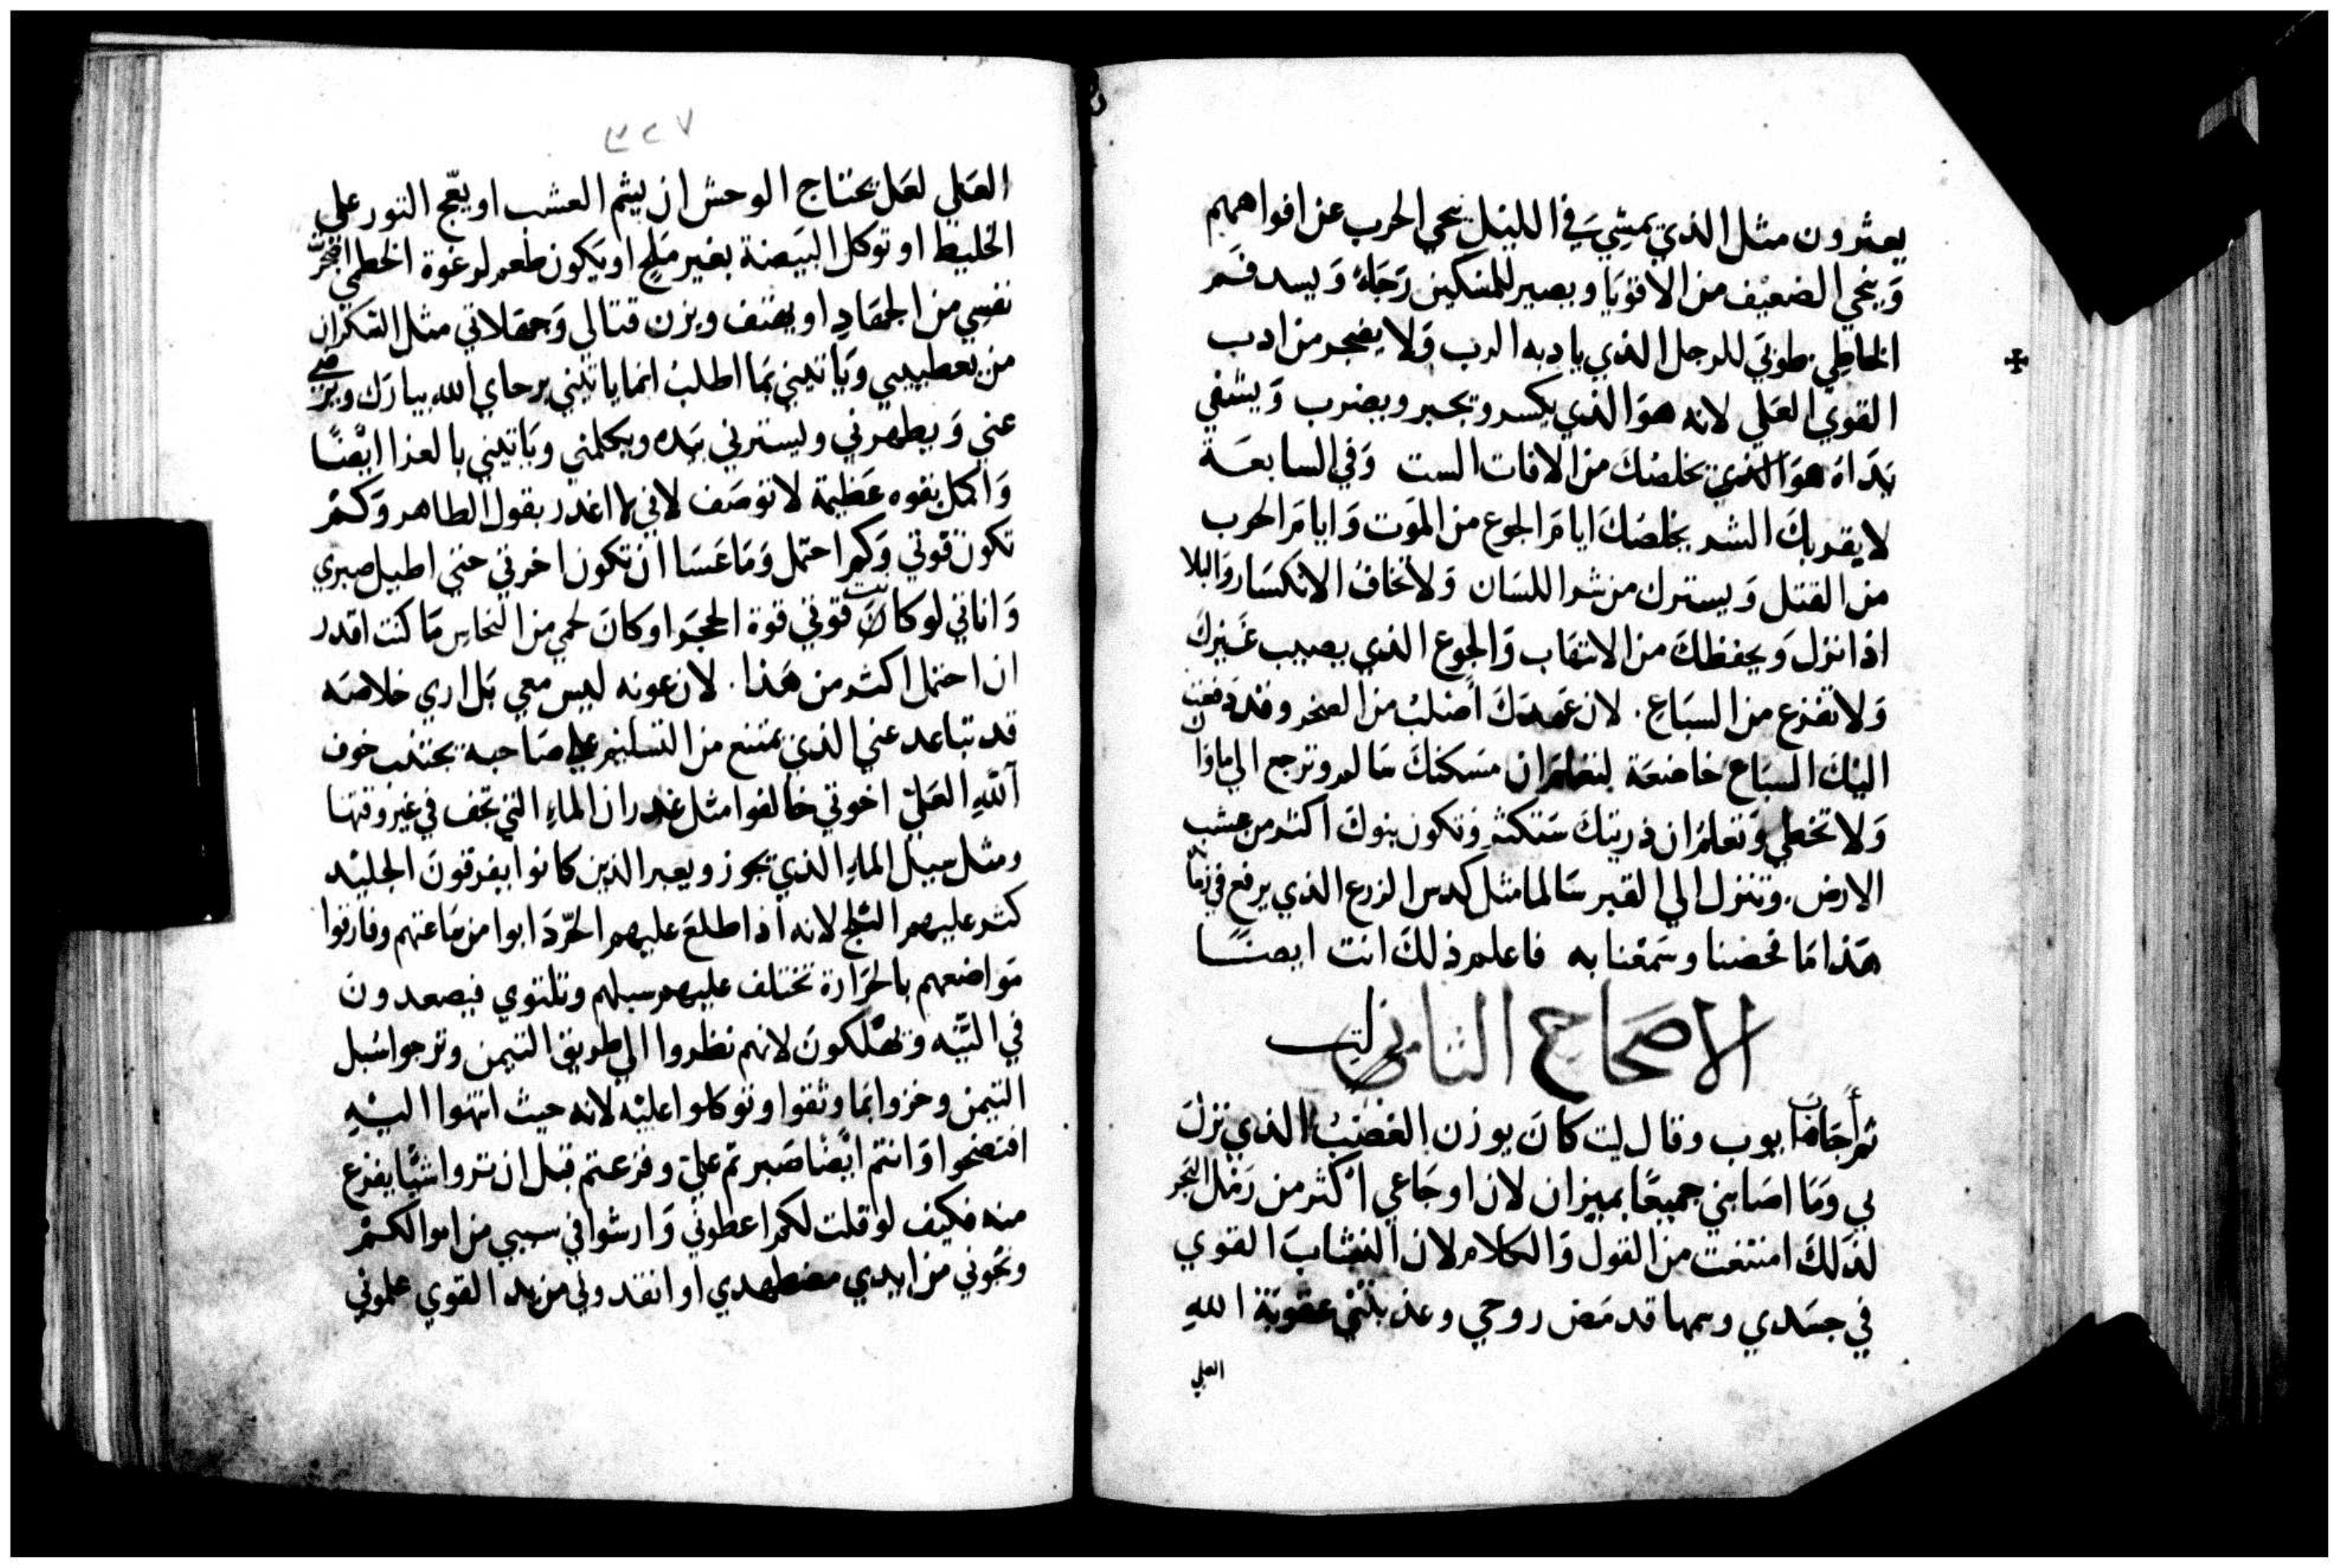 يعثرون مثل الذي يمشي في الليل ينجي الحرب عن افواههم
وَينجي الضعيف من الاقويَا ويصير للمسكين رَجَاهُ وَيسد فَم
الخاطِي. طوبَي للرجل الذي يادبه الرب وَلا يضجر من ادب
القوي العَلي لانه هوَ الذي يكسر وَيجبر ويضرب وَيشفي
بَدَاهُ هوَ الذي يخلصُكَ من الافات الست وَفي السابعَة
لا يقربكَ الشر يخلصُكَ ايامَ الجوع من الموَت وَايامَ الحرب
من القتل وَيسترك من شر اللسَان وَلا تخافُ الانكسَار والبلا
اذا نزل وَيحفظكَ من الانتهَاب وَالجوع الذي يصيب غَيركَ
وَلا تفزع من السبَاعِ. لان عَهدَكَ اصْلبُ من الصخر وقد دفعت
اليْكَ السبَاع خاضعَة لتعلمَ ان مسَكنكَ سَالم وترجع الي ماواك
وَلا تخطي وَتعلمَ ان ذريتكَ سَتكثر وَتكون بنوكَ اكثر من عشب
الارض. وتنزل الي القبر سَالما مثل كدس الزرع الذي يرفع في زمَا
هَذا مَا فحصْنا وسَمعْنا به فاعلم ذلكَ انت ايضًا
الاصَحَاح الثاني لب
ثم أجَابَ ايوب وقال ليت كانَ يوزن الغضَبُ الذي نزلَ
بي وَمَا اصَابني جميعًا بميزان لان اوجَاعي اكثر من رَمْل البَحر
لذلكَ امتنعت من القول وَالكلام لان النشابَ القوي
في جسَدي وسمها قد مَض روحي وعذبتني عقوبَة اللهِ
العلي
٣٢٧
العَلي لعَل يحتاج الوحش ان يشم العشب او يعّج الثور علي
الخليط او توكل البَيضة بغير مَلح او يَكون طعم لرغوة الخطمي اضجَرت
نفسِي من الجهَادِ او يهتف ويزن قتالي وَجهَلاتي مثل السَكران
من يعطيني وَياتيني بمَا اطلبُ انما ياتيني برحاي الله يبارَك ويرضي
عني وَيطهرني وليسترني بَيده ويكلمني وَياتيني بالعزا ايْضًا
وَاكمل بقوه عَظيمة لا توصَف لاني لم اغدر بقول الطاهر وَكَم
تكون قوتي وَكم احتمل وَمَا عَسَا ان تكون اخرتي حتي اطيل صبري
وَاناني لو كانت قوتي قوة الحجَر او كانَ لحمي من النحاس مَا كنت اقدر
ان احتمل اكثر من هَذا. لان عونه ليس معي بَل اري خلاصَه
قد تباعد عني الذي يمتنع من التسليم علي صَاحبه يجتنب خوف
اللهِ العَليّ اخوتي خالفوا مثل غدران الماءِ التي تجف في غير وقتها
ومثل سيل الماءِ الذي يجوز ويعبر الذين كانوا يفرقونَ الجليْد
كثر عليهم الثلج لانه اذا طلعَ عليهم الحرّ دَابوا من مَاعتهم وفارقوا
مَواضعهم بالحَرارة تختلف عليهم سبلهم وتلتوي فيصعدونَ
في التّيه وَيهْلكونَ لانهم نظروا الي طريق التيمن وترجوا سُبل
التيمن وخزوا بمَا وثقوا وتوكلوا عليْه لانه حيث انتهوا اليْهِ
افتضحوا وَانتم ايْضًا صَبرتم عَليّ وفزعتم قبل ان تروا شيًّا يفزع
منه فكيف لو قلت لكم اعطوني وَارشوا في سببي من اموالكم
ونجوني من ايدي مضطهدي او انقدوني من يد القوي علموني